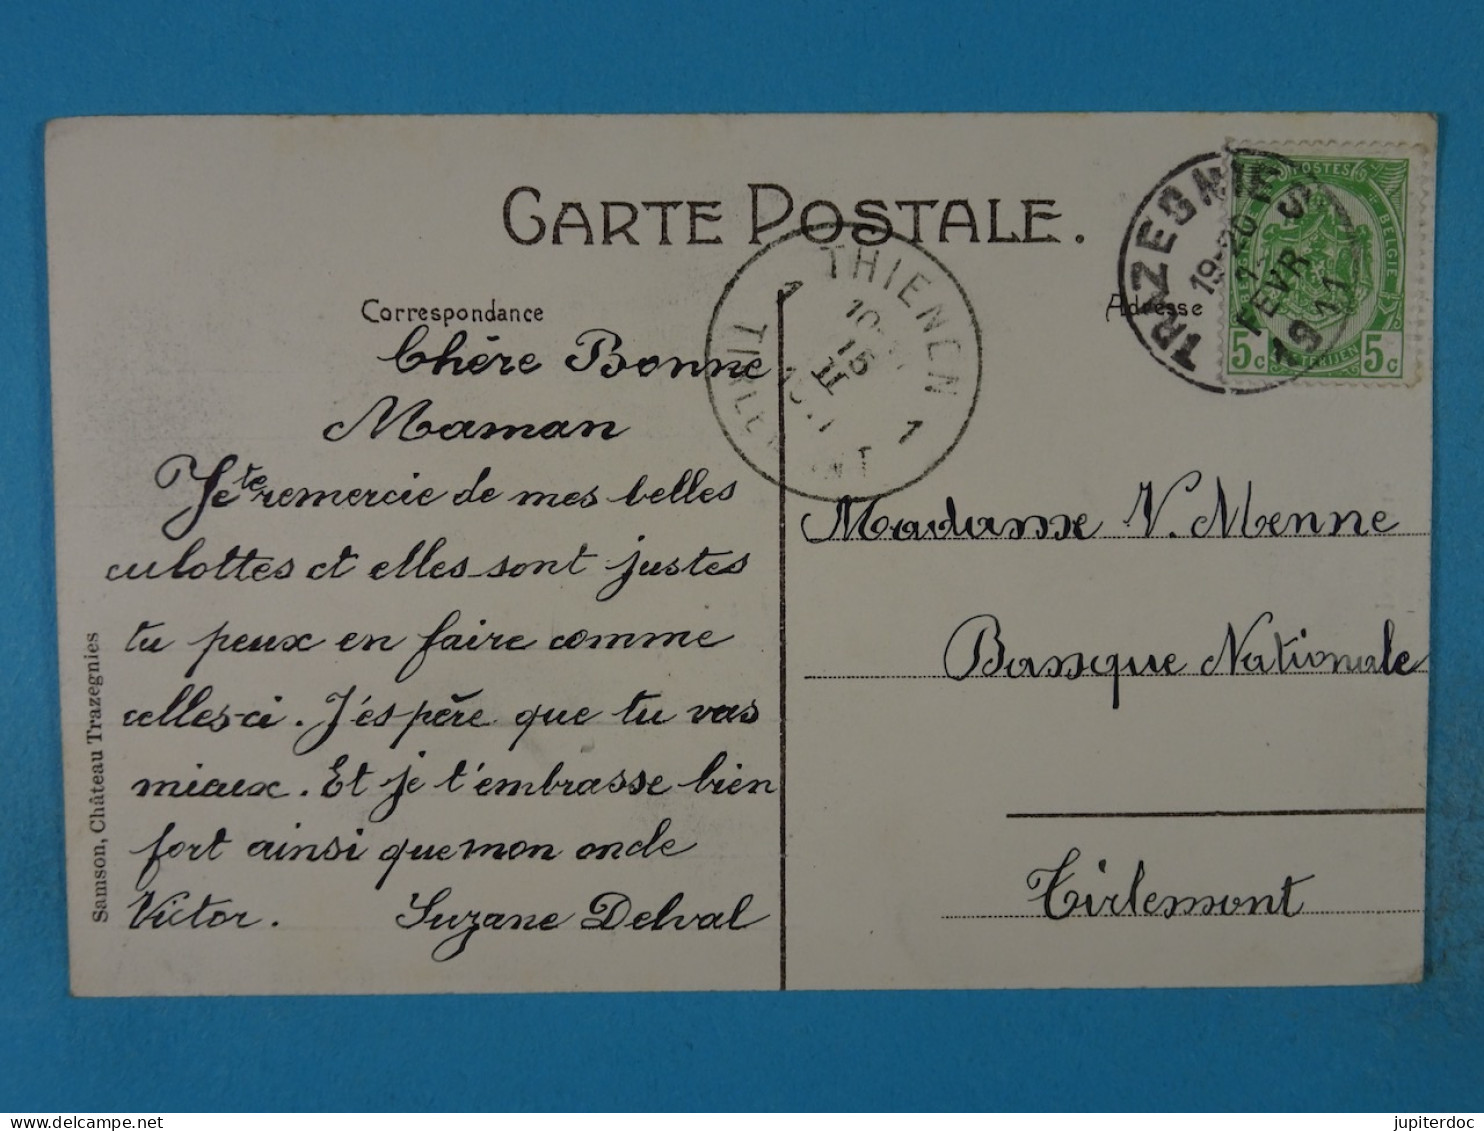 CARTE POSTALE.
Correspondance
Chère Bonne
Maman
Je te remercie de mes belles
culottes et elles sont justes
tu peux en faire comme
celles-ci. J'espère que tu vas
mieux. Et je t'embrasse bien
fort ainsi que mon oncle
Victor. Suzane Delval
Samson, Château Trazegnies
THIENEN
15
II
1
TRAZEGNIES
19-20
FEVR
1911
POSTES
BELGIE
5c 5c
Adresse
Madame V. Menne
Banque Nationale
Tirlemont
jupiterdoc